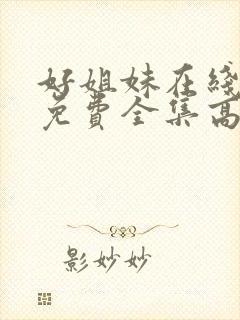 好姐妹在线
免费全集高
影妙妙